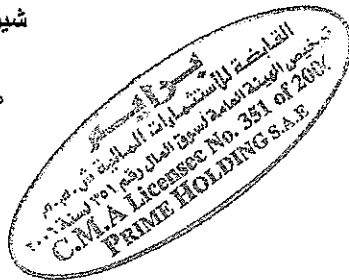 شيو
برايم
القابضة للاستثمارات المالية ش.م.م
ترخيص الهيئة العامة لسوق المال رقم ٣٥١ لسنة ٢٠٠٦
C.M.A Licensee No. 351 of 200
PRIME HOLDING S.A.E